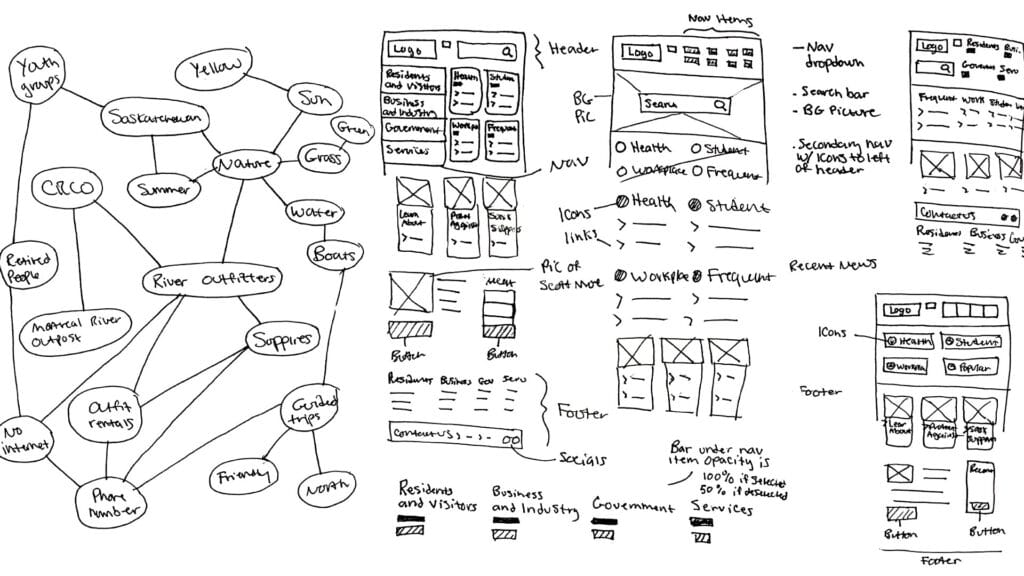 Youth
groups
Yellow
Sun
Green
Saskatchewan
Grass
Nature
CRCO
Summer
Water
Boats
Retired
People
River Outfitters
Montreal River
Outpost
Suppires
Outfit
rentals
Guided
trips
No
internet
Friendly
North
Phone
number
Logo
Header
Residents
and Visitors
Business
and Industry
Government
Services
Health
Studen
Workpl
Frequent
Nav
Learn
About
Protect
Against
Support
Pic of
Scott Moe
Button
Button
Business
Gov
Serv
Footer
Contact US
Socials
Residents
and Visitors
Business
and Industry
Government
Services
Bar under nav
item opacity is
100% if selected
50% if deselected
Nav Items
Logo
BG
Pic
Search
Health
Student
Workplace
Frequent
Icons
links
Health
Student
Workplace
Frequent
- Nav
dropdown
- Search bar
- BG Picture
- Secondary nav
w/ Icons to left
of header
Logo
Residents
Busi.
Governm
Serv
Frequent
Work
Studen
Contact us
Business
Gov
Recent News
Logo
Icons
Health
Student
Popular
Footer
Lear
About
Protect
Against
Support
Button
Button
Footer